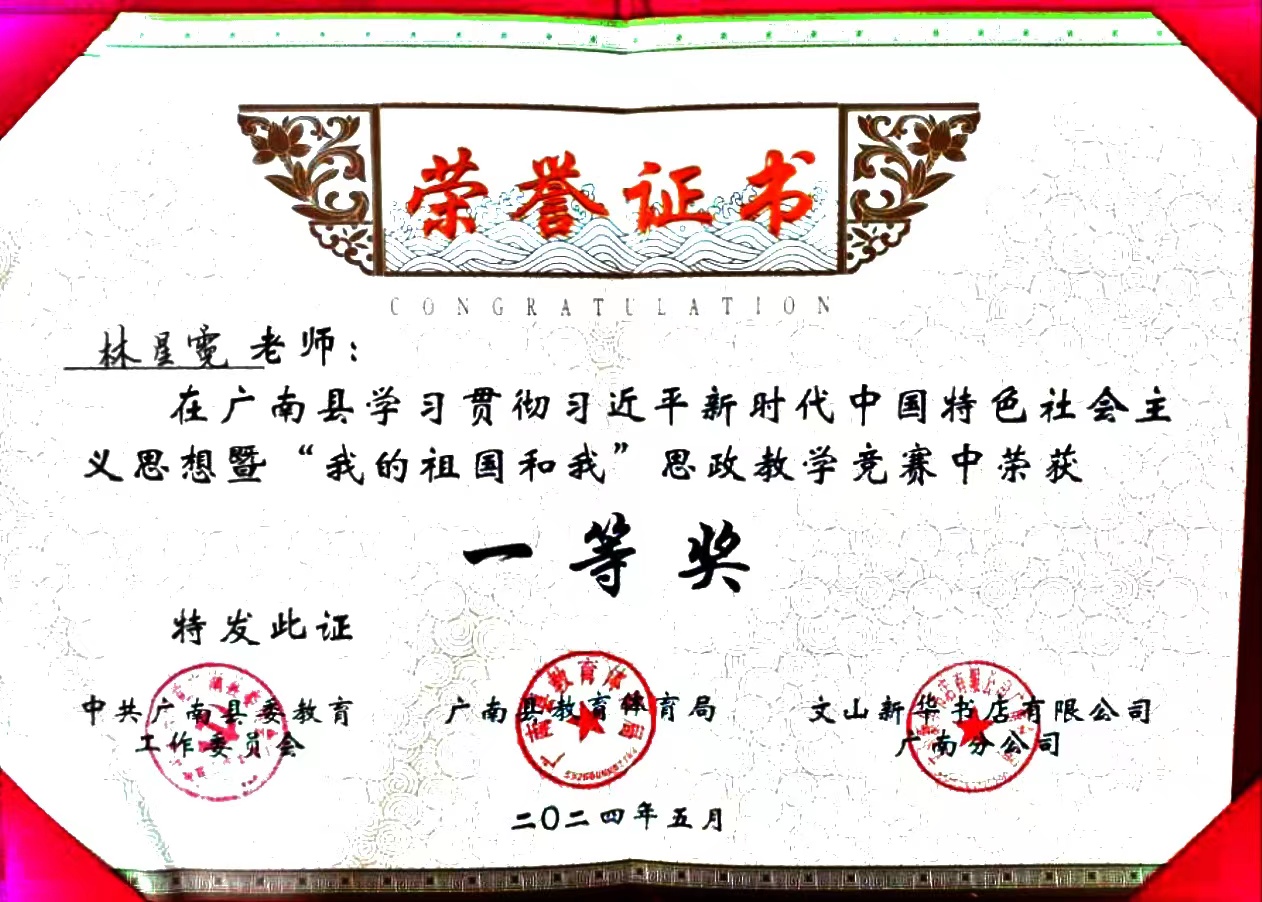 荣誉证书
CONGRATULATION
林星霓老师：
在广南县学习贯彻习近平新时代中国特色社会主
义思想暨“我的祖国和我”思政教学竞赛中荣获
一等奖
特发此证
中共广南县委教育
工作委员会
广南县教育体育局
文山新华书店有限公司
广南分公司
广南县教育体育局
二〇二四年五月